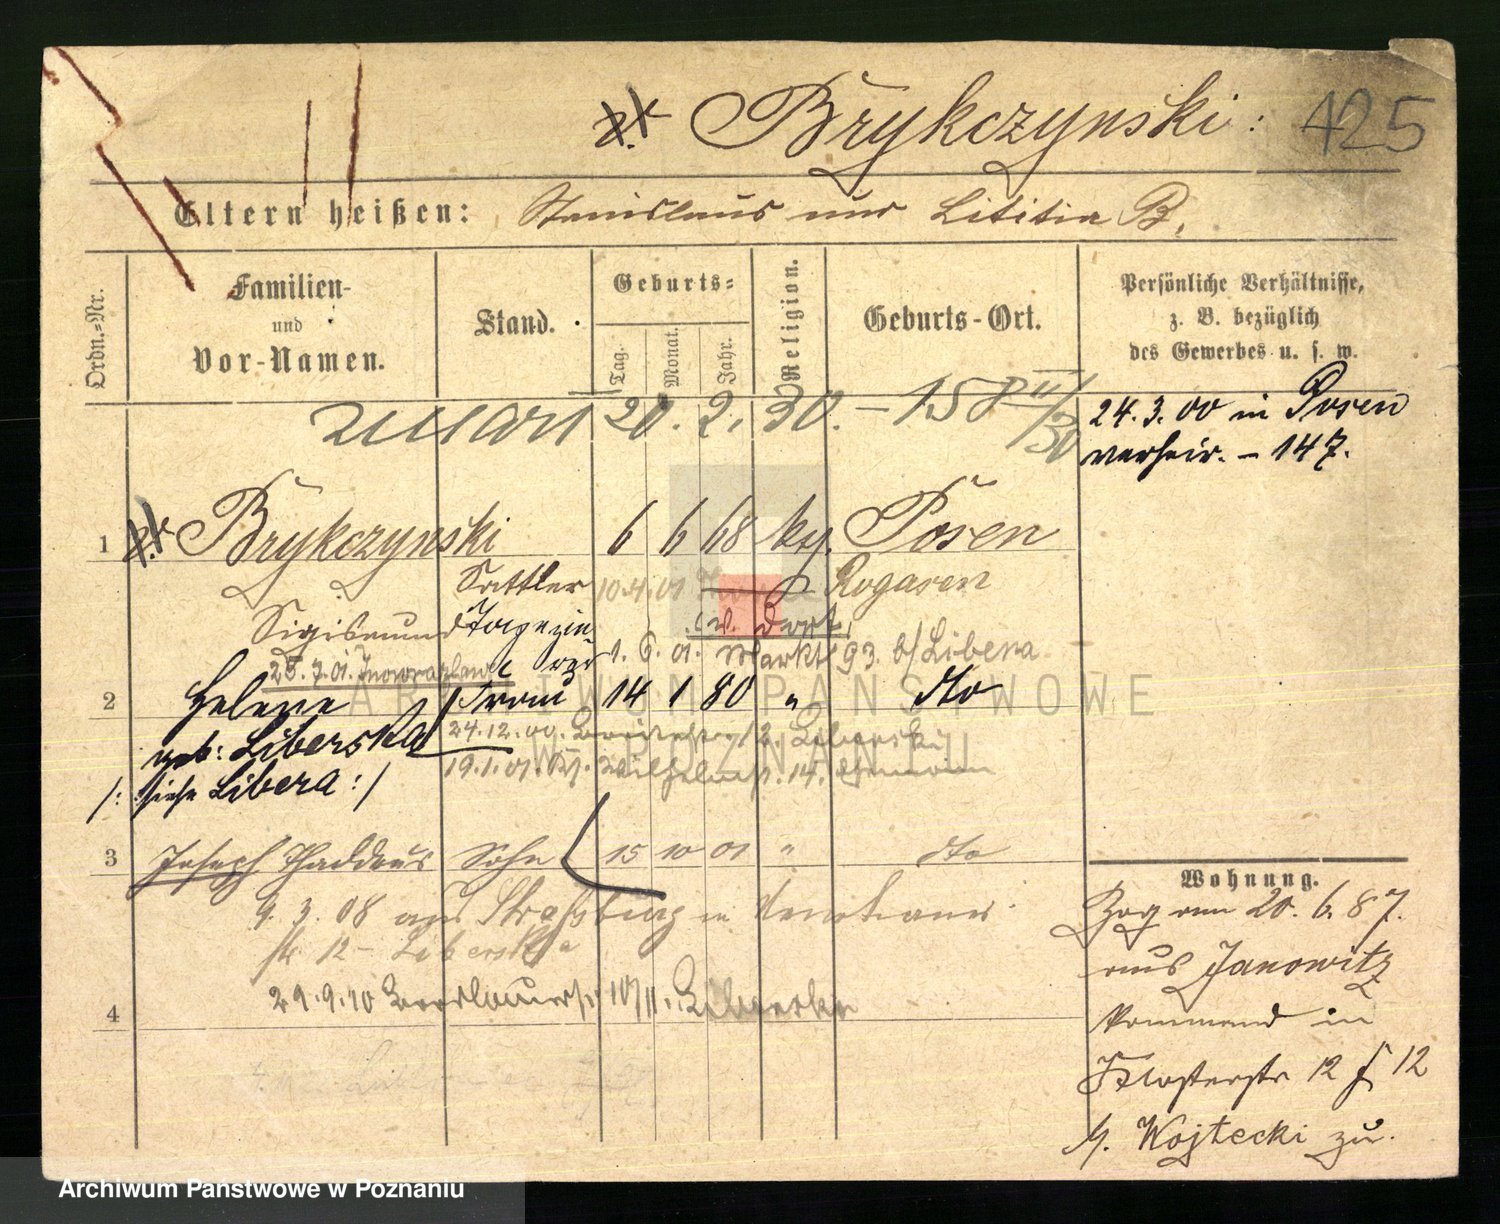 Brykczynski: 425
Eltern heißen: Stanislaus und Lititia B.
Ordn.-Nr.
Familien- und Vor-Namen.
Stand.
Geburts-
Tag. Monat. Jahr.
Religion.
Geburts-Ort.
Persönliche Verhältnisse, z. B. bezüglich des Gewerbes u. s. w.
20. 2. 30. - 158 II/30
24.3.00 in Posen
verheir. - 147.
1 Brykczynski 6 6 68 Posen
Sattler 10.4.01 Rogasen
Sigismund Tapezie-
rer 1. 6. 01. Markt 93. b/Libera
25.7.01. Inowrazlaw
2 Helene Frau 14 1 80 " dto
geb: Liberska 24.12.00.
/: siehe Libera :/ 19.1.01. 14.
3 Joseph Thaddeus Sohn 15 10 01 " dto
9. 3. 08 aus Straßburg in
12 - Liberska
29.9.10 10/11. Liberska
4
Wohnung.
Zog am 20. 6. 87.
aus Janowitz
kommend in
Klosterstr 12
Wojtecki zu.
ARCHIWUM PAŃSTWOWE
W POZNANIU
Archiwum Państwowe w Poznaniu